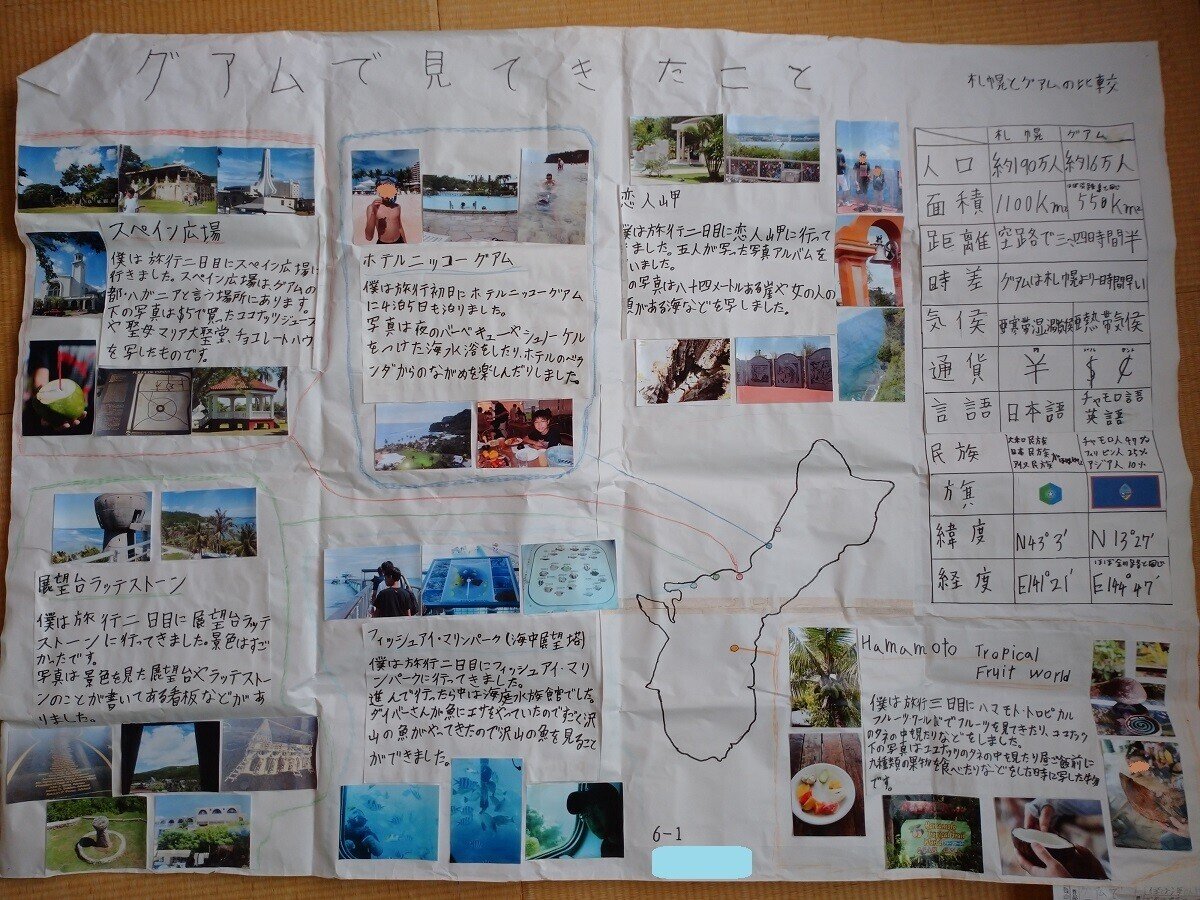 グアムで見てきたこと
スペイン広場
僕は旅行二日目にスペイン広場に
行きました。スペイン広場はグアムの
都・ハガニアと言う場所にあります。
下の写真は$5で買ったココナッツジュース
や聖母マリア大聖堂、チョコレートハウ
を写したものです。
ホテルニッコーグアム
僕は旅行初日にホテルニッコーグアム
に4泊5日も泊りました。
写真は夜のバーベキューやシュノーケル
をつけた海水浴をしたり、ホテルのベラ
ンダからのながめを楽しんだりしました。
恋人山甲
僕は旅行二日目に恋人山甲に行って
きました。五人が写った写真アルバムを
いました。
の写真は八十四メートルある崖や女の人の
顔がある海などを写しました。
札幌とグアムの比較
札幌 グアム
人口 約190万人 約16万人
面積 1100Km² 550Km²
距離 空路で三、四時間半
時差 グアムは札幌より一時間早い
気候 亜熱帯気候
通貨 円 ¥ ドル $ セント ¢
言語 日本語 チャモロ語 英語
民族 大和民族 日本民族 アイヌ民族 チャモロ人47% フィリピン人25% アジア人10%
旗
緯度 N43°3' N13°27'
経度 E141°21' E144°47'
展望台ラッテストーン
僕は旅行二日目に展望台ラッテ
ストーンに行ってきました。景色はすご
かったです。
写真は景色を見た展望台やラッテストー
ンのことが書いてある看板などがあ
りました。
フィッシュアイ・マリンパーク(海中展望塔)
僕は旅行二日目にフィッシュアイ・マリ
ンパークに行ってきました。
進んで行ったら中は海底水族館でした。
ダイバーさんが魚にエサをやていたのですごく沢
山の魚がやってきたので沢山の魚を見ること
ができました。
Hamamoto Tropical
Fruit world
僕は旅行三日目にハマモト・トロピカル
フルーツワールドでフルーツを見てきたり、ココナッツ
のタネの中見たりなどをしました。
下の写真はココナッツのタネの中見たり昼ご飯前に
九種類の果物を食べたりなどをした時に写した物
です。
6-1